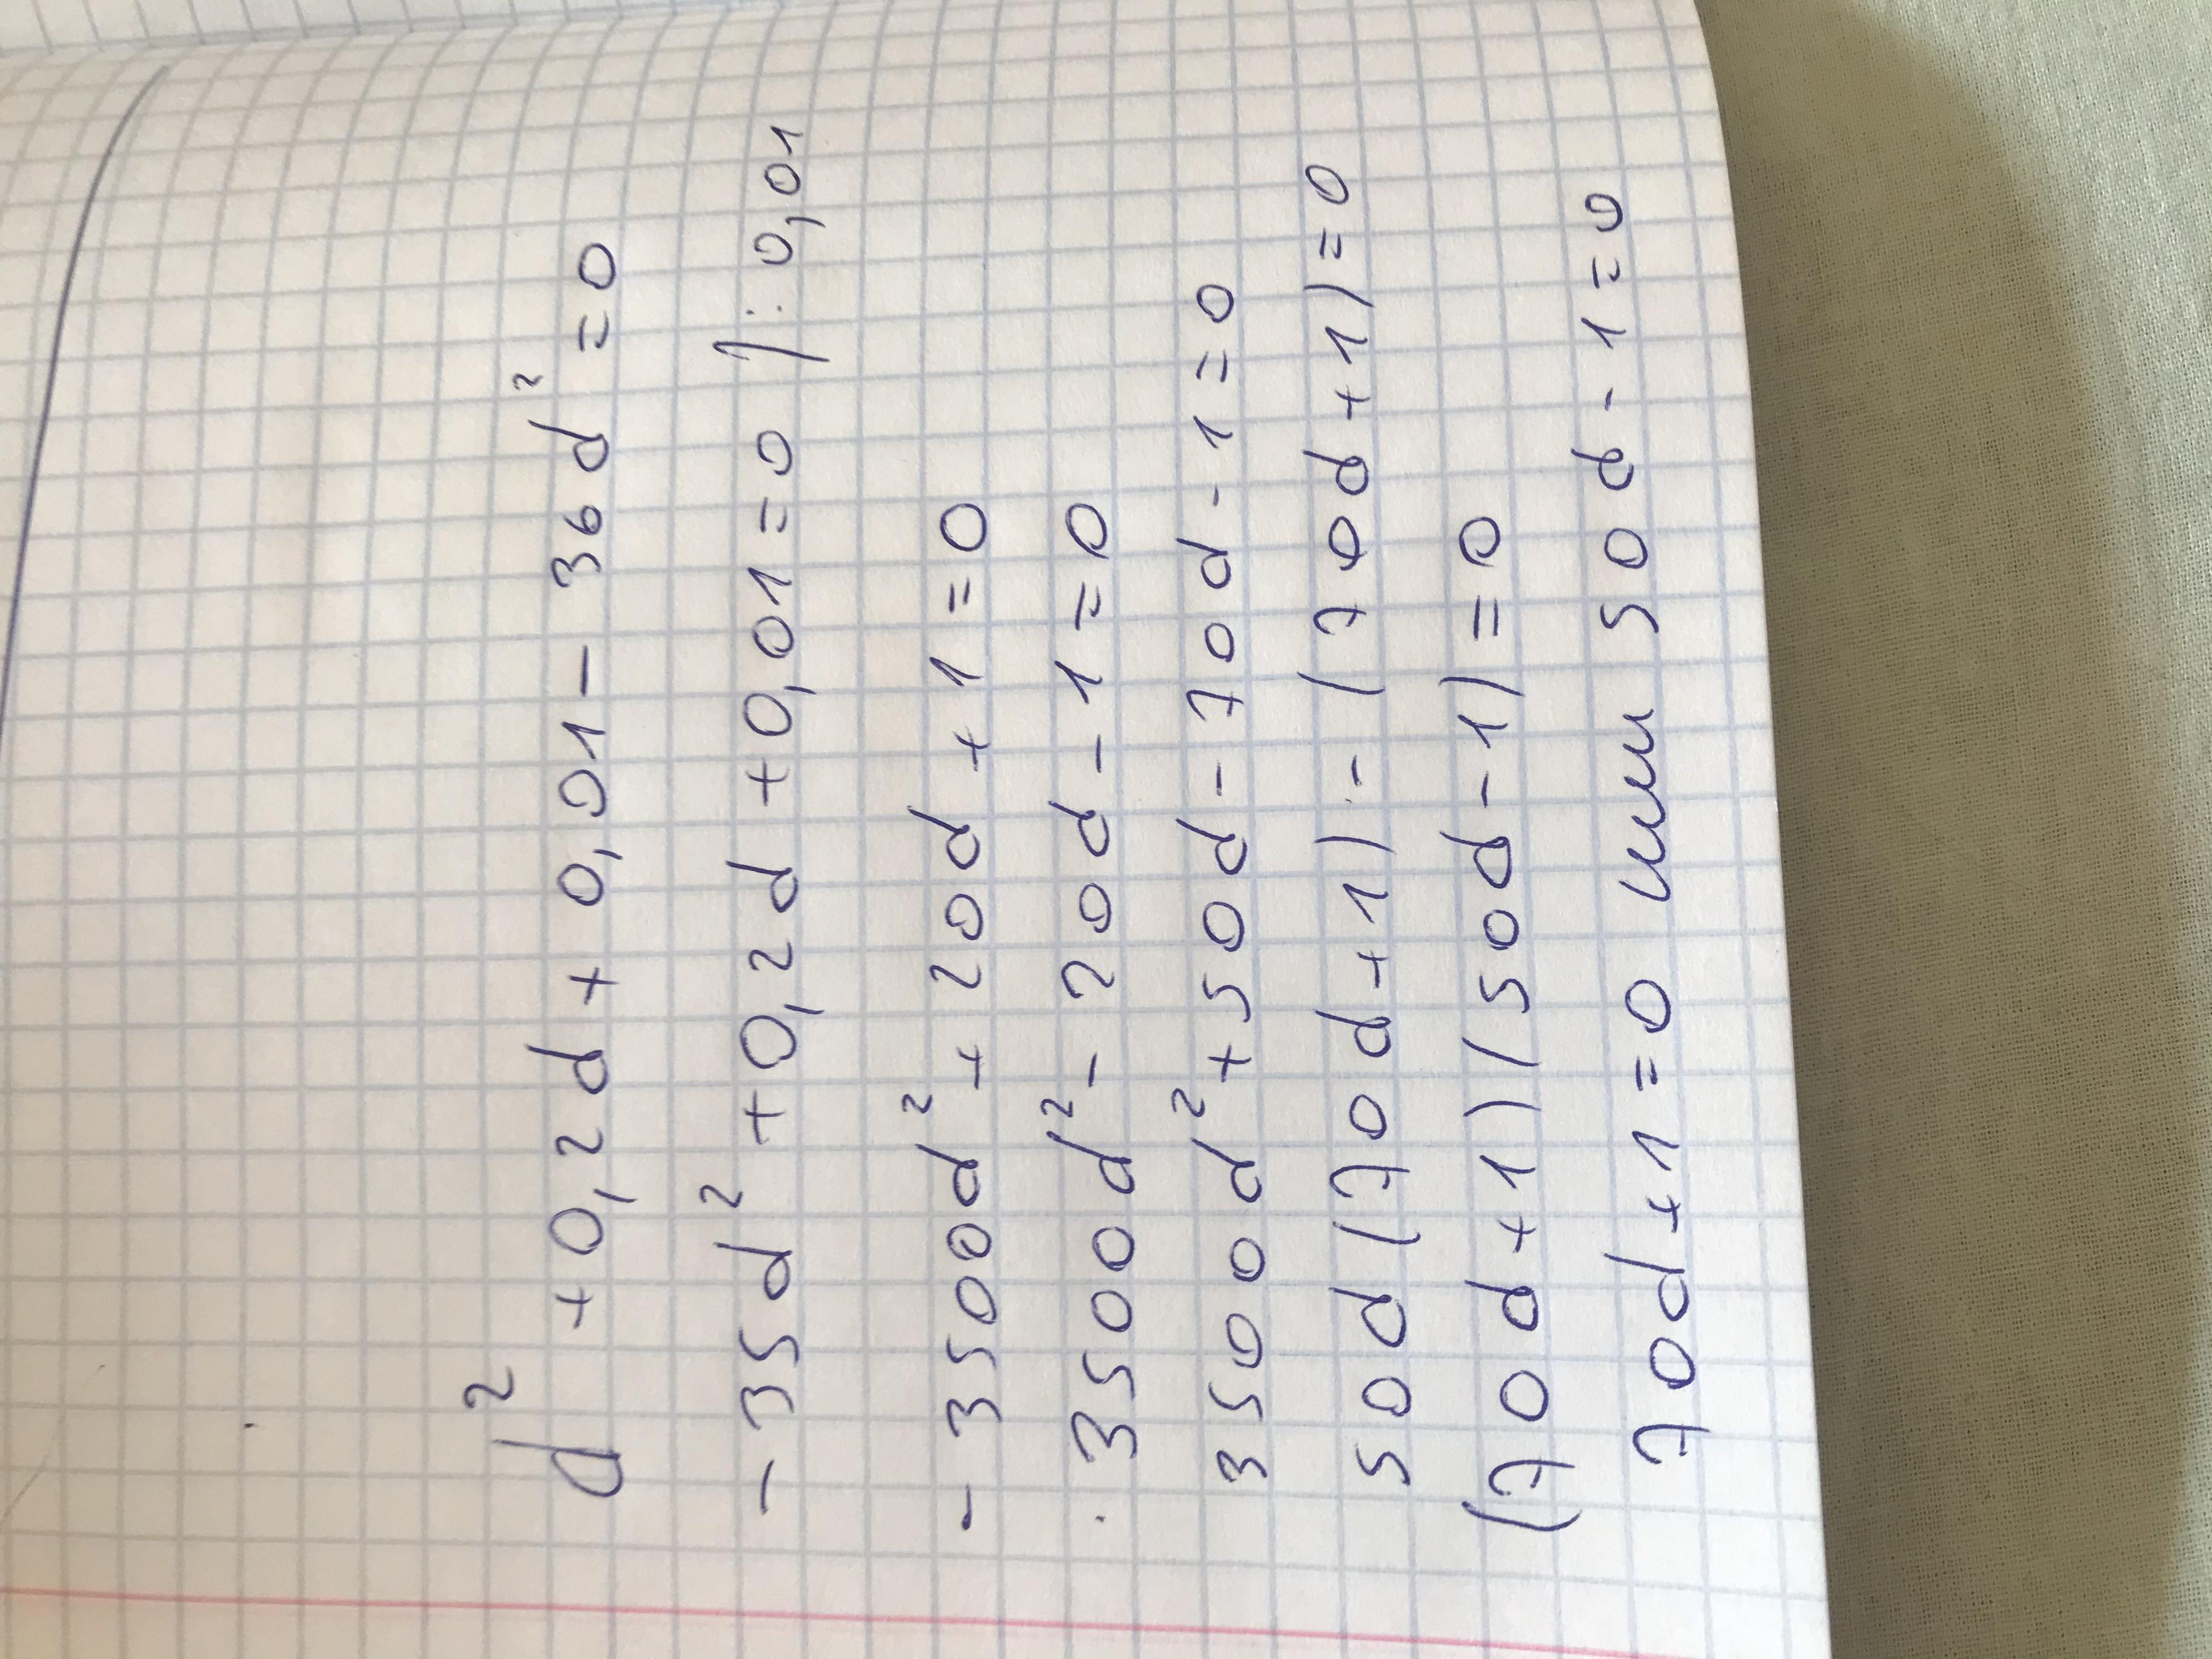 d² + 0,2d + 0,01 - 36d² = 0
- 35d² + 0,2d + 0,01 = 0 / : 0,01
- 3500d² + 20d + 1 = 0
3500d² - 20d - 1 = 0
3500d² + 50d - 70d - 1 = 0
50d (70d + 1) - (70d + 1) = 0
(70d + 1) (50d - 1) = 0
70d + 1 = 0 или 50d - 1 = 0